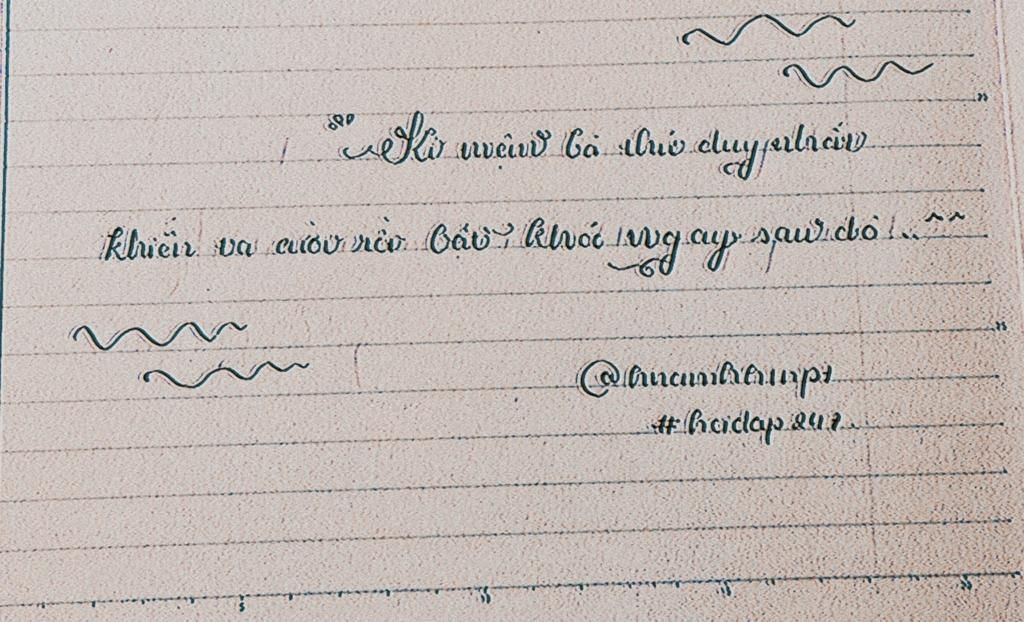 Kỉ niệm là thứ duy nhất
khiến ta cười rồi bật khóc ngay sau đó!..^^
#hoidap247